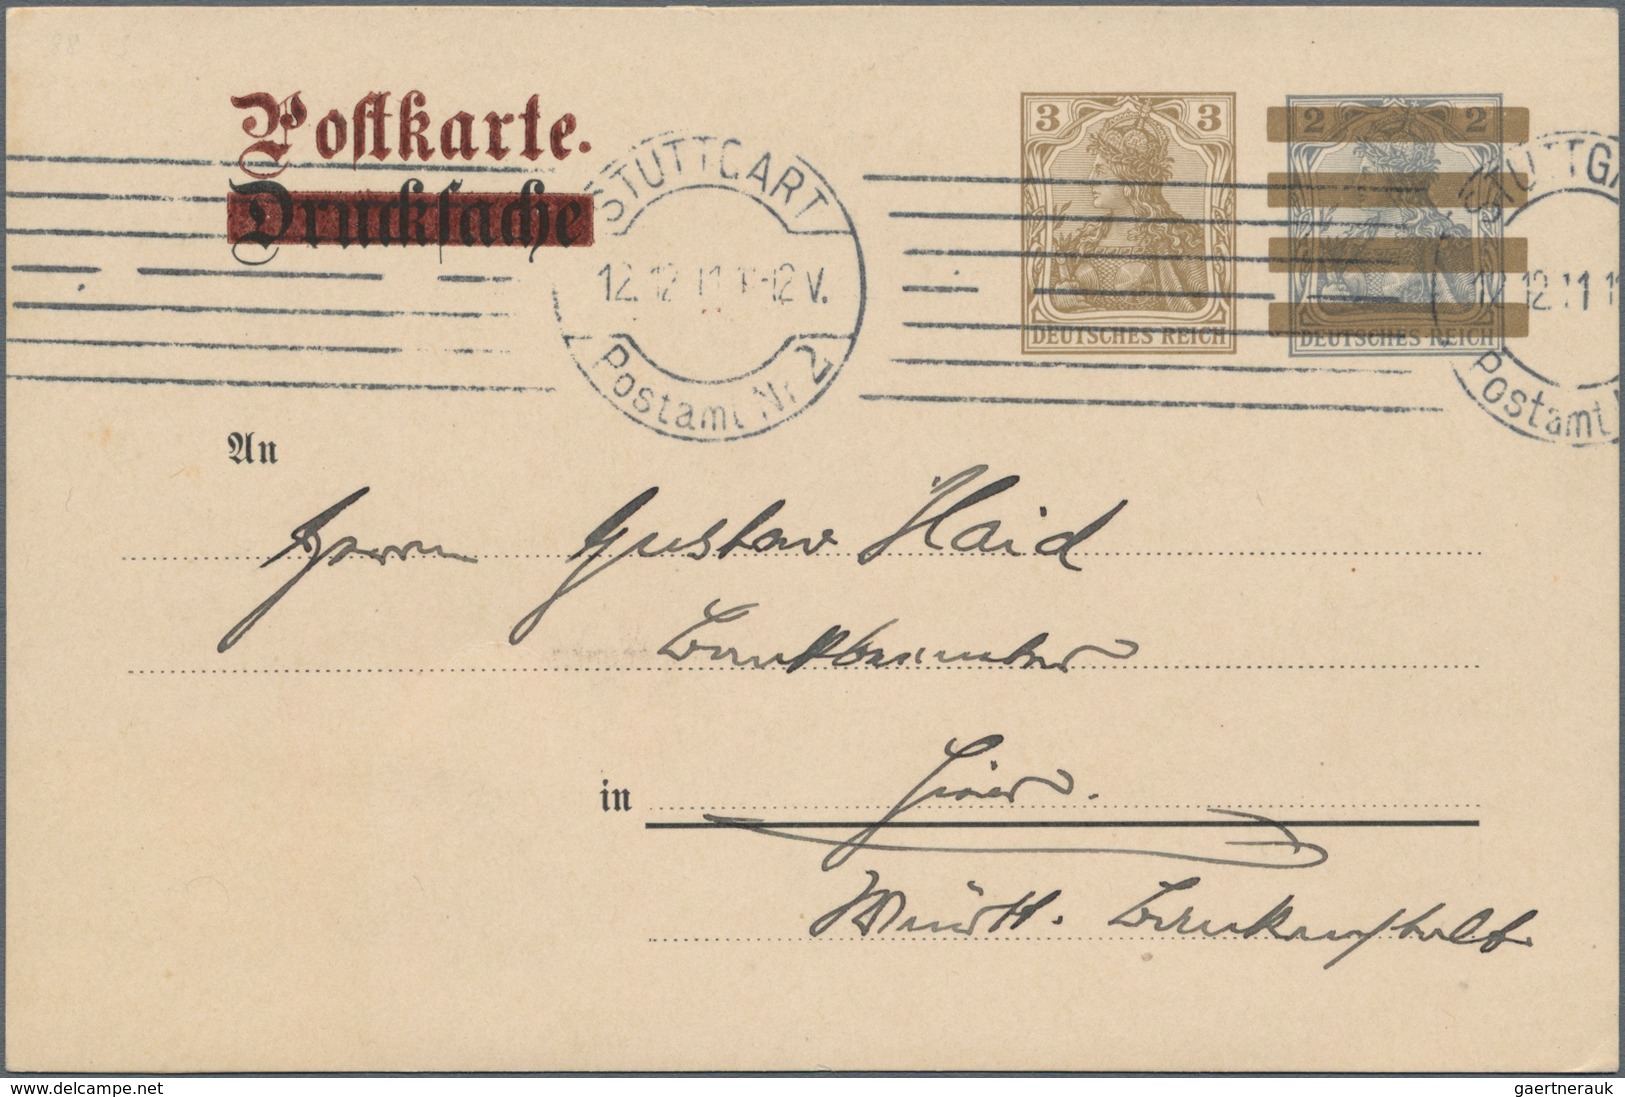 Postkarte.
Drucksache
3 3
DEUTSCHES REICH
2 2
DEUTSCHES REICH
STUTTGART
12.12.11.11-12 V.
Postamt Nr 2
STUTTGA
12.12.11 11
Postamt N
An
Herrn Gustav Haid
Bankbeamter
in Hier.
Württ. Bankanstalt
gaertnerauk
www.delcampe.net